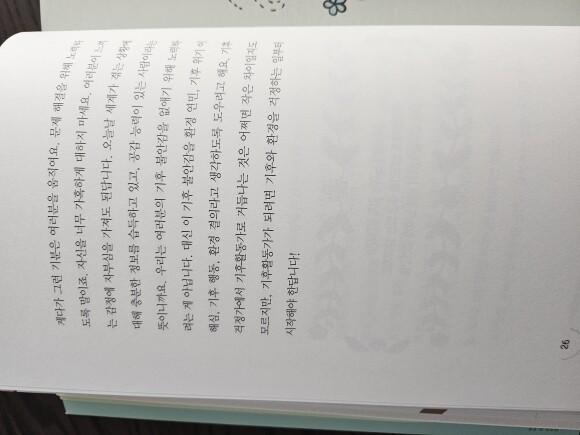 게다가 그런 기분은 여러분을 움직여요. 문제 해결을 위해 노력하
도록 말이죠. 자신을 너무 가혹하게 대하지 마세요. 여러분이 느끼
는 감정에 자부심을 가져도 된답니다. 오늘날 세계가 겪는 상황에
대해 충분한 정보를 습득하고 있고, 공감 능력이 있는 사람이라는
뜻이니까요. 우리는 여러분의 기후 불안감을 없애기 위해 노력하
려는 게 아닙니다. 대신 이 기후 불안감을 환경 연민, 기후 위기 이
해심, 기후 행동, 환경 결의라고 생각하도록 도우려고 해요. 기후
걱정가에서 기후활동가로 거듭나는 것은 어쩌면 작은 차이일지도
모르지만, 기후활동가가 되려면 기후와 환경을 걱정하는 일부터
시작해야 한답니다!
26